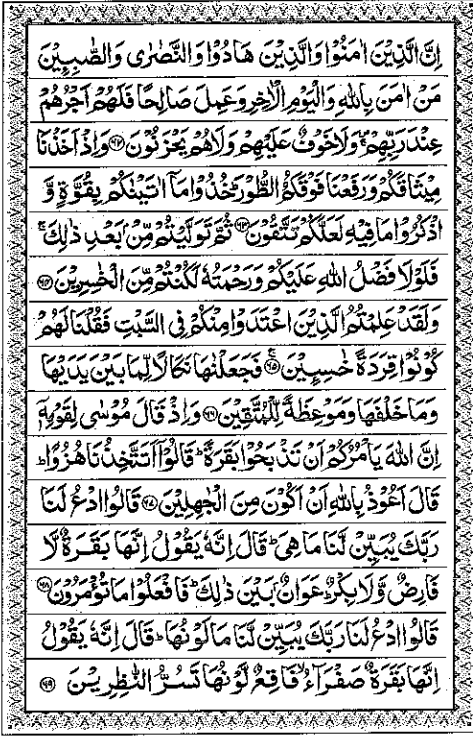 اِنَّ الَّذِيْنَ اٰمَنُوْا وَالَّذِيْنَ هَادُوْا وَالنَّصٰرٰى وَالصّٰبِـِٕيْنَ
مَنْ اٰمَنَ بِاللّٰهِ وَالْيَوْمِ الْاٰخِرِ وَعَمِلَ صَالِحًا فَلَهُمْ اَجْرُهُمْ
عِنْدَ رَبِّهِمْ ۚ وَلَا خَوْفٌ عَلَيْهِمْ وَلَا هُمْ يَحْزَنُوْنَ ﴿۶۲﴾ وَاِذْ اَخَذْنَا
مِيْثَاقَكُمْ وَرَفَعْنَا فَوْقَكُمُ الطُّوْرَ ؕ خُذُوْا مَاۤ اٰتَيْنٰكُمْ بِقُوَّةٍ وَّ
اذْكُرُوْا مَا فِيْهِ لَعَلَّكُمْ تَتَّقُوْنَ ﴿۶۳﴾ ثُمَّ تَوَلَّيْتُمْ مِّنْۢ بَعْدِ ذٰلِكَ ۚ
فَلَوْلَا فَضْلُ اللّٰهِ عَلَيْكُمْ وَرَحْمَتُهٗ لَكُنْتُمْ مِّنَ الْخٰسِرِيْنَ ﴿۶۴﴾
وَلَقَدْ عَلِمْتُمُ الَّذِيْنَ اعْتَدَوْا مِنْكُمْ فِى السَّبْتِ فَقُلْنَا لَهُمْ
كُوْنُوْا قِرَدَةً خٰسِـِٕيْنَ ﴿۶۵﴾ فَجَعَلْنٰهَا نَكَالًا لِّمَا بَيْنَ يَدَيْهَا
وَمَا خَلْفَهَا وَمَوْعِظَةً لِّلْمُتَّقِيْنَ ﴿۶۶﴾ وَاِذْ قَالَ مُوْسٰى لِقَوْمِهٖۤ
اِنَّ اللّٰهَ يَاْمُرُكُمْ اَنْ تَذْبَحُوْا بَقَرَةً ؕ قَالُوْۤا اَتَتَّخِذُنَا هُزُوًا ؕ
قَالَ اَعُوْذُ بِاللّٰهِ اَنْ اَكُوْنَ مِنَ الْجٰهِلِيْنَ ﴿۶۷﴾ قَالُوا ادْعُ لَنَا
رَبَّكَ يُبَيِّنْ لَّنَا مَا هِىَ ؕ قَالَ اِنَّهٗ يَقُوْلُ اِنَّهَا بَقَرَةٌ لَّا
فَارِضٌ وَّلَا بِكْرٌ ؕ عَوَانٌۢ بَيْنَ ذٰلِكَ ؕ فَافْعَلُوْا مَا تُؤْمَرُوْنَ ﴿۶۸﴾
قَالُوا ادْعُ لَنَا رَبَّكَ يُبَيِّنْ لَّنَا مَا لَوْنُهَا ؕ قَالَ اِنَّهٗ يَقُوْلُ
اِنَّهَا بَقَرَةٌ صَفْرَآءُ ۙ فَاقِعٌ لَّوْنُهَا تَسُرُّ النّٰظِرِيْنَ ﴿۶۹﴾